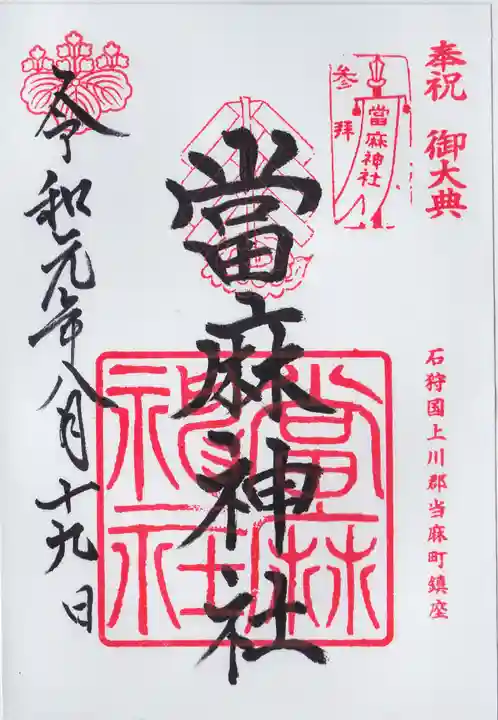 奉祝 御大典
石狩国上川郡当麻町鎮座
參拜
當麻神社
當麻神社
當麻神社
令和元年八月十九日